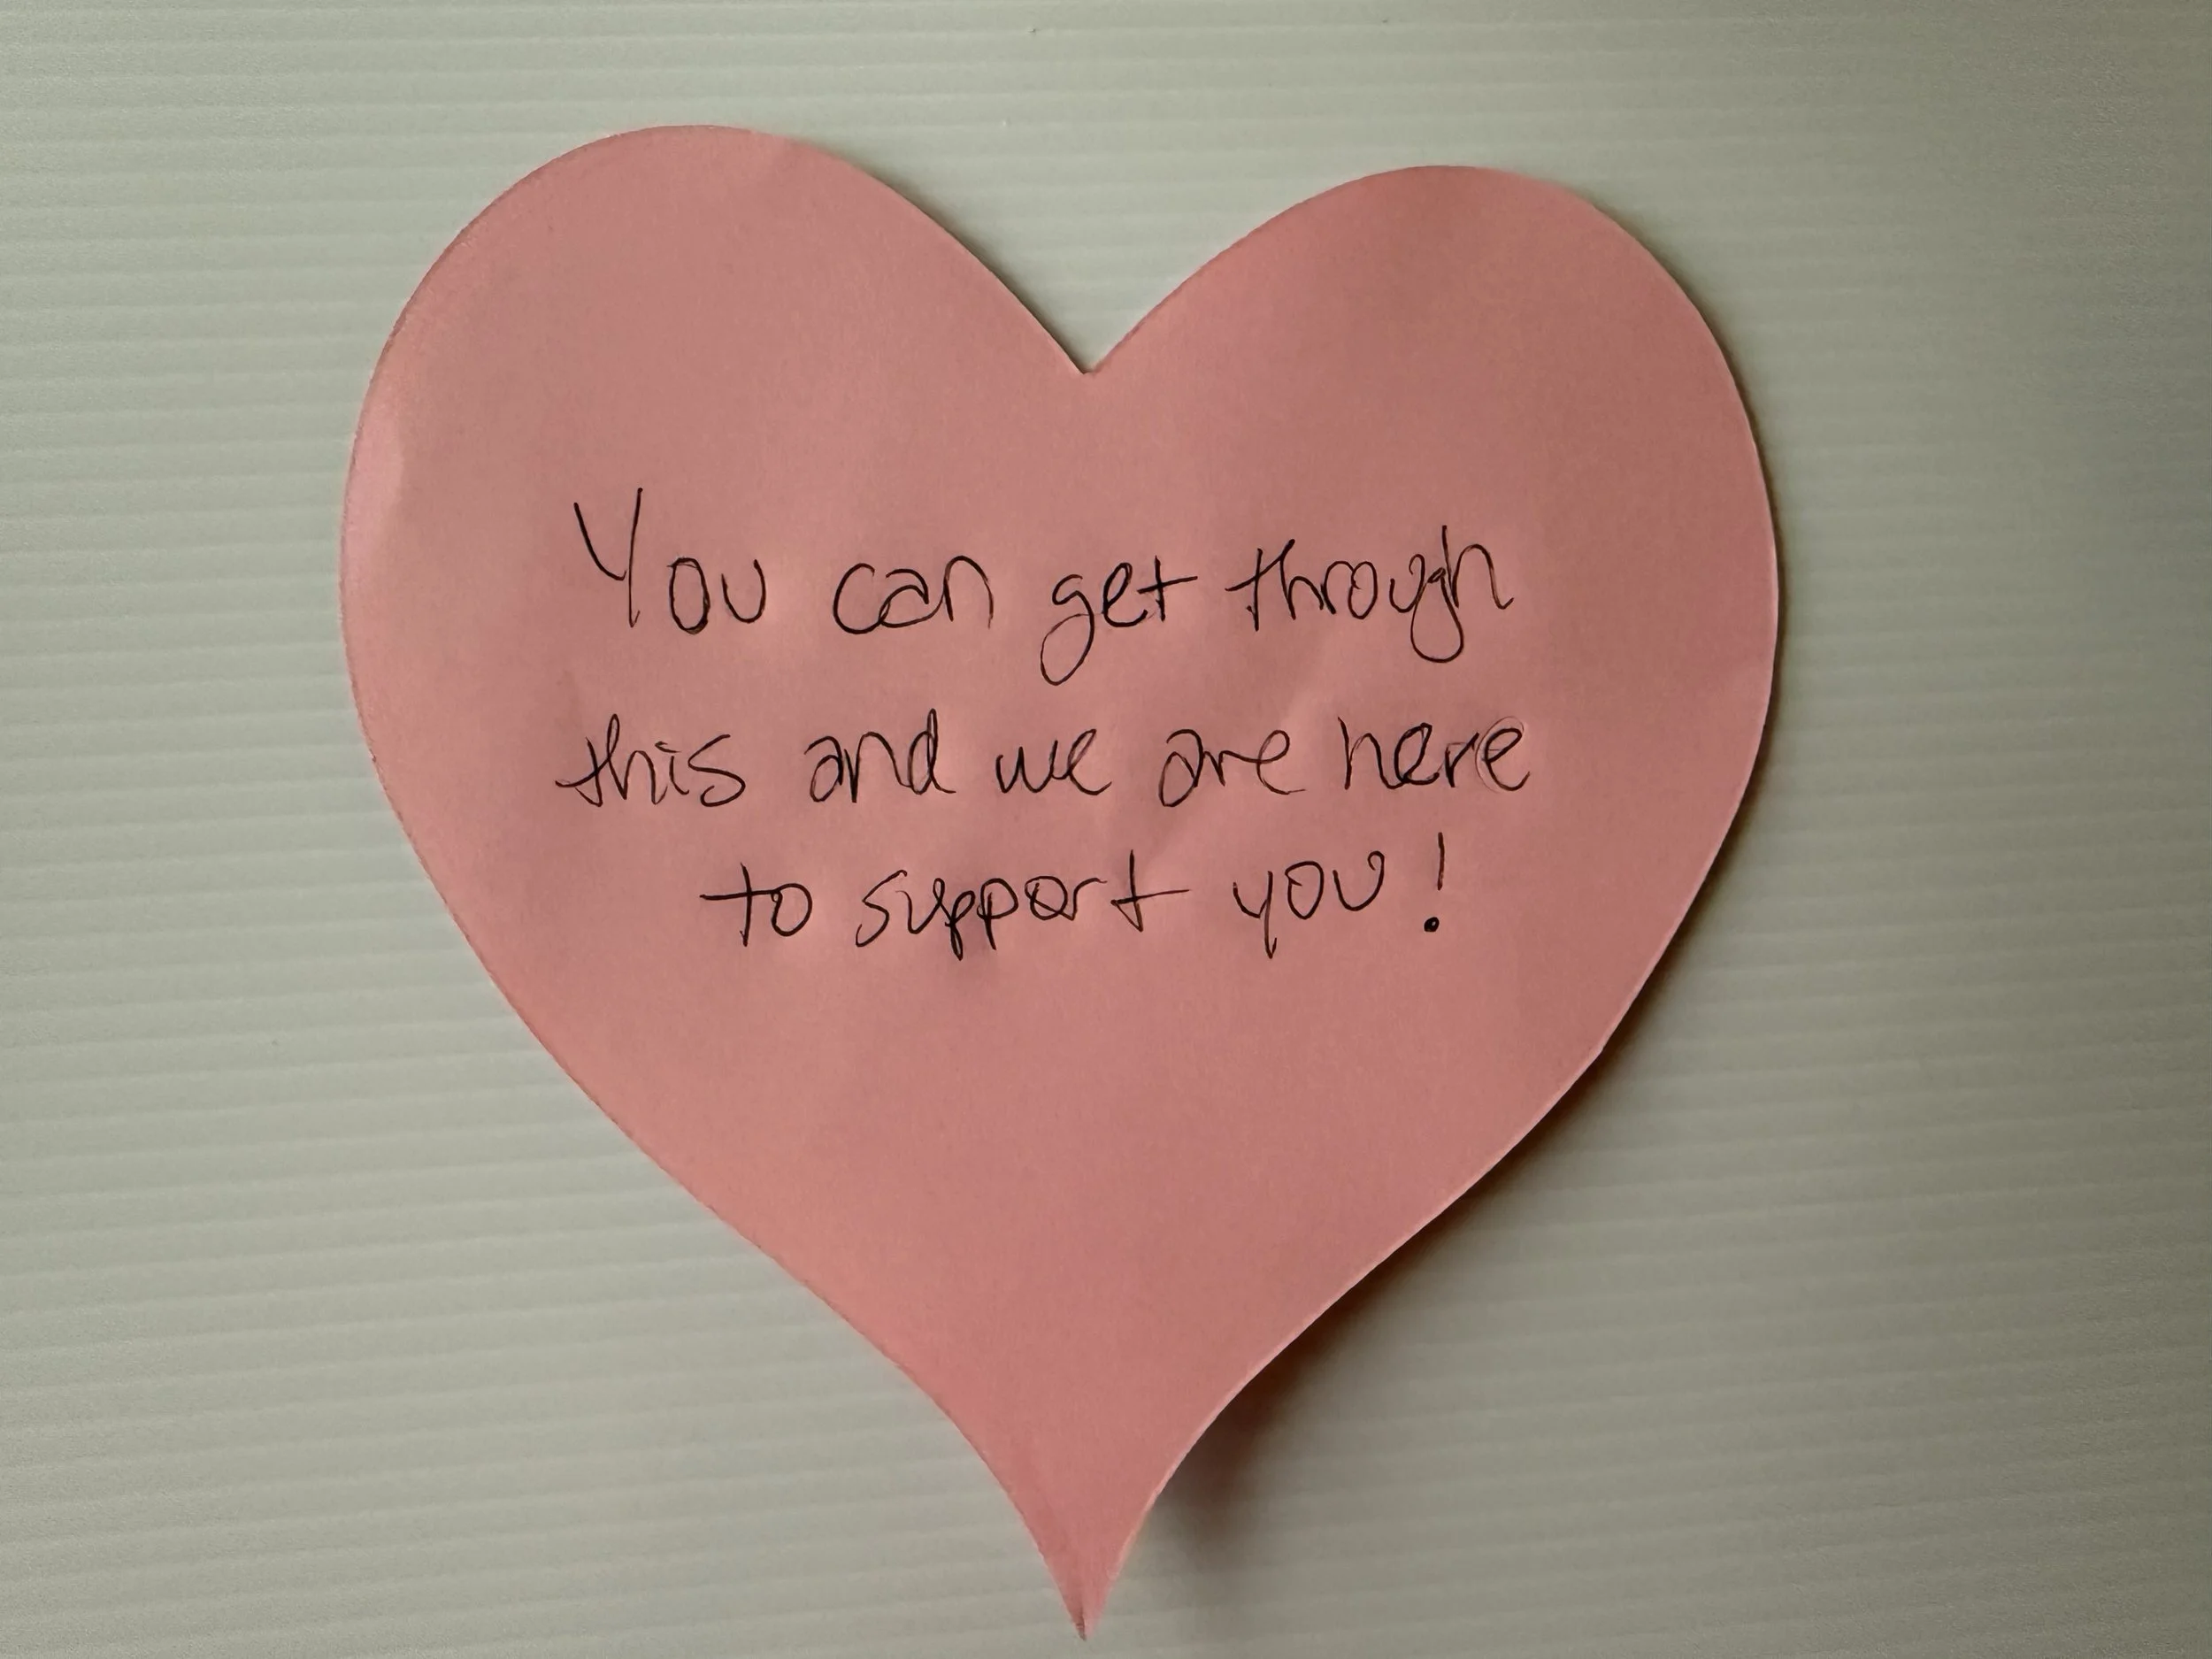 You can get through
this and we are here
to support you!